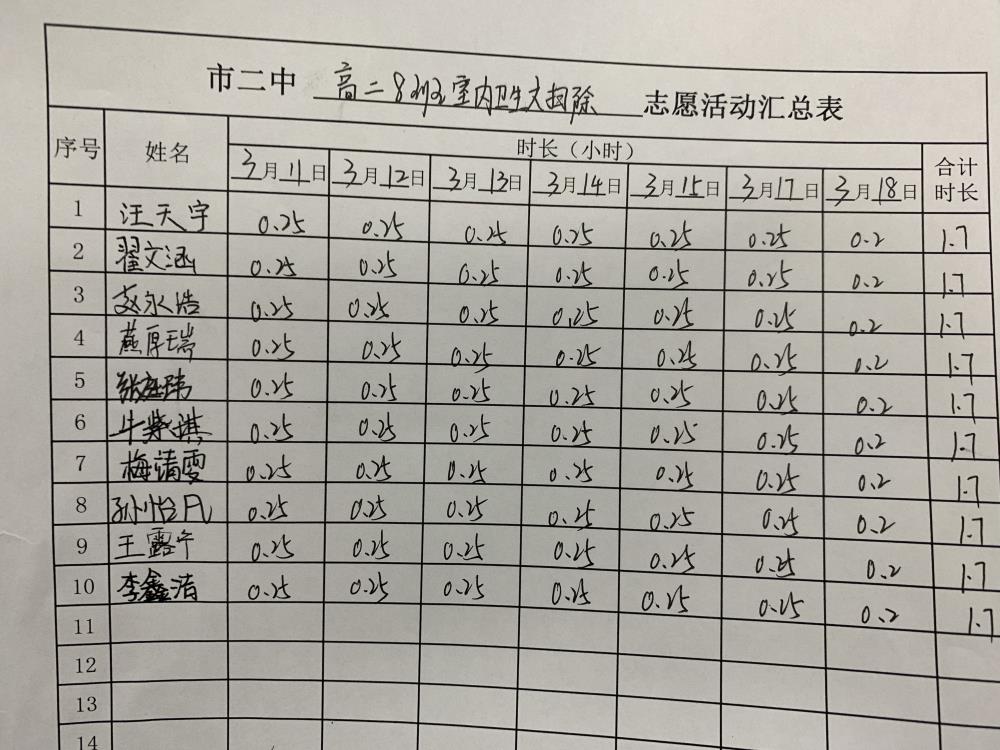 市二中 高二8班室内卫生大扫除 志愿活动汇总表
序号 姓名 时长(小时) 合计时长
3月11日 3月12日 3月13日 3月14日 3月15日 3月17日 3月18日
1 汪天宇 0.25 0.25 0.25 0.25 0.25 0.25 0.2 1.7
2 翟文涵 0.25 0.25 0.25 0.25 0.25 0.25 0.2 1.7
3 赵永浩 0.25 0.25 0.25 0.25 0.25 0.25 0.2 1.7
4 燕厚瑞 0.25 0.25 0.25 0.25 0.25 0.25 0.2 1.7
5 张庭玮 0.25 0.25 0.25 0.25 0.25 0.25 0.2 1.7
6 牛紫琪 0.25 0.25 0.25 0.25 0.25 0.25 0.2 1.7
7 梅清雯 0.25 0.25 0.25 0.25 0.25 0.25 0.2 1.7
8 孙怡凡 0.25 0.25 0.25 0.25 0.25 0.25 0.2 1.7
9 王露午 0.25 0.25 0.25 0.25 0.25 0.25 0.2 1.7
10 李鑫洁 0.25 0.25 0.25 0.25 0.25 0.25 0.2 1.7
11
12
13
14